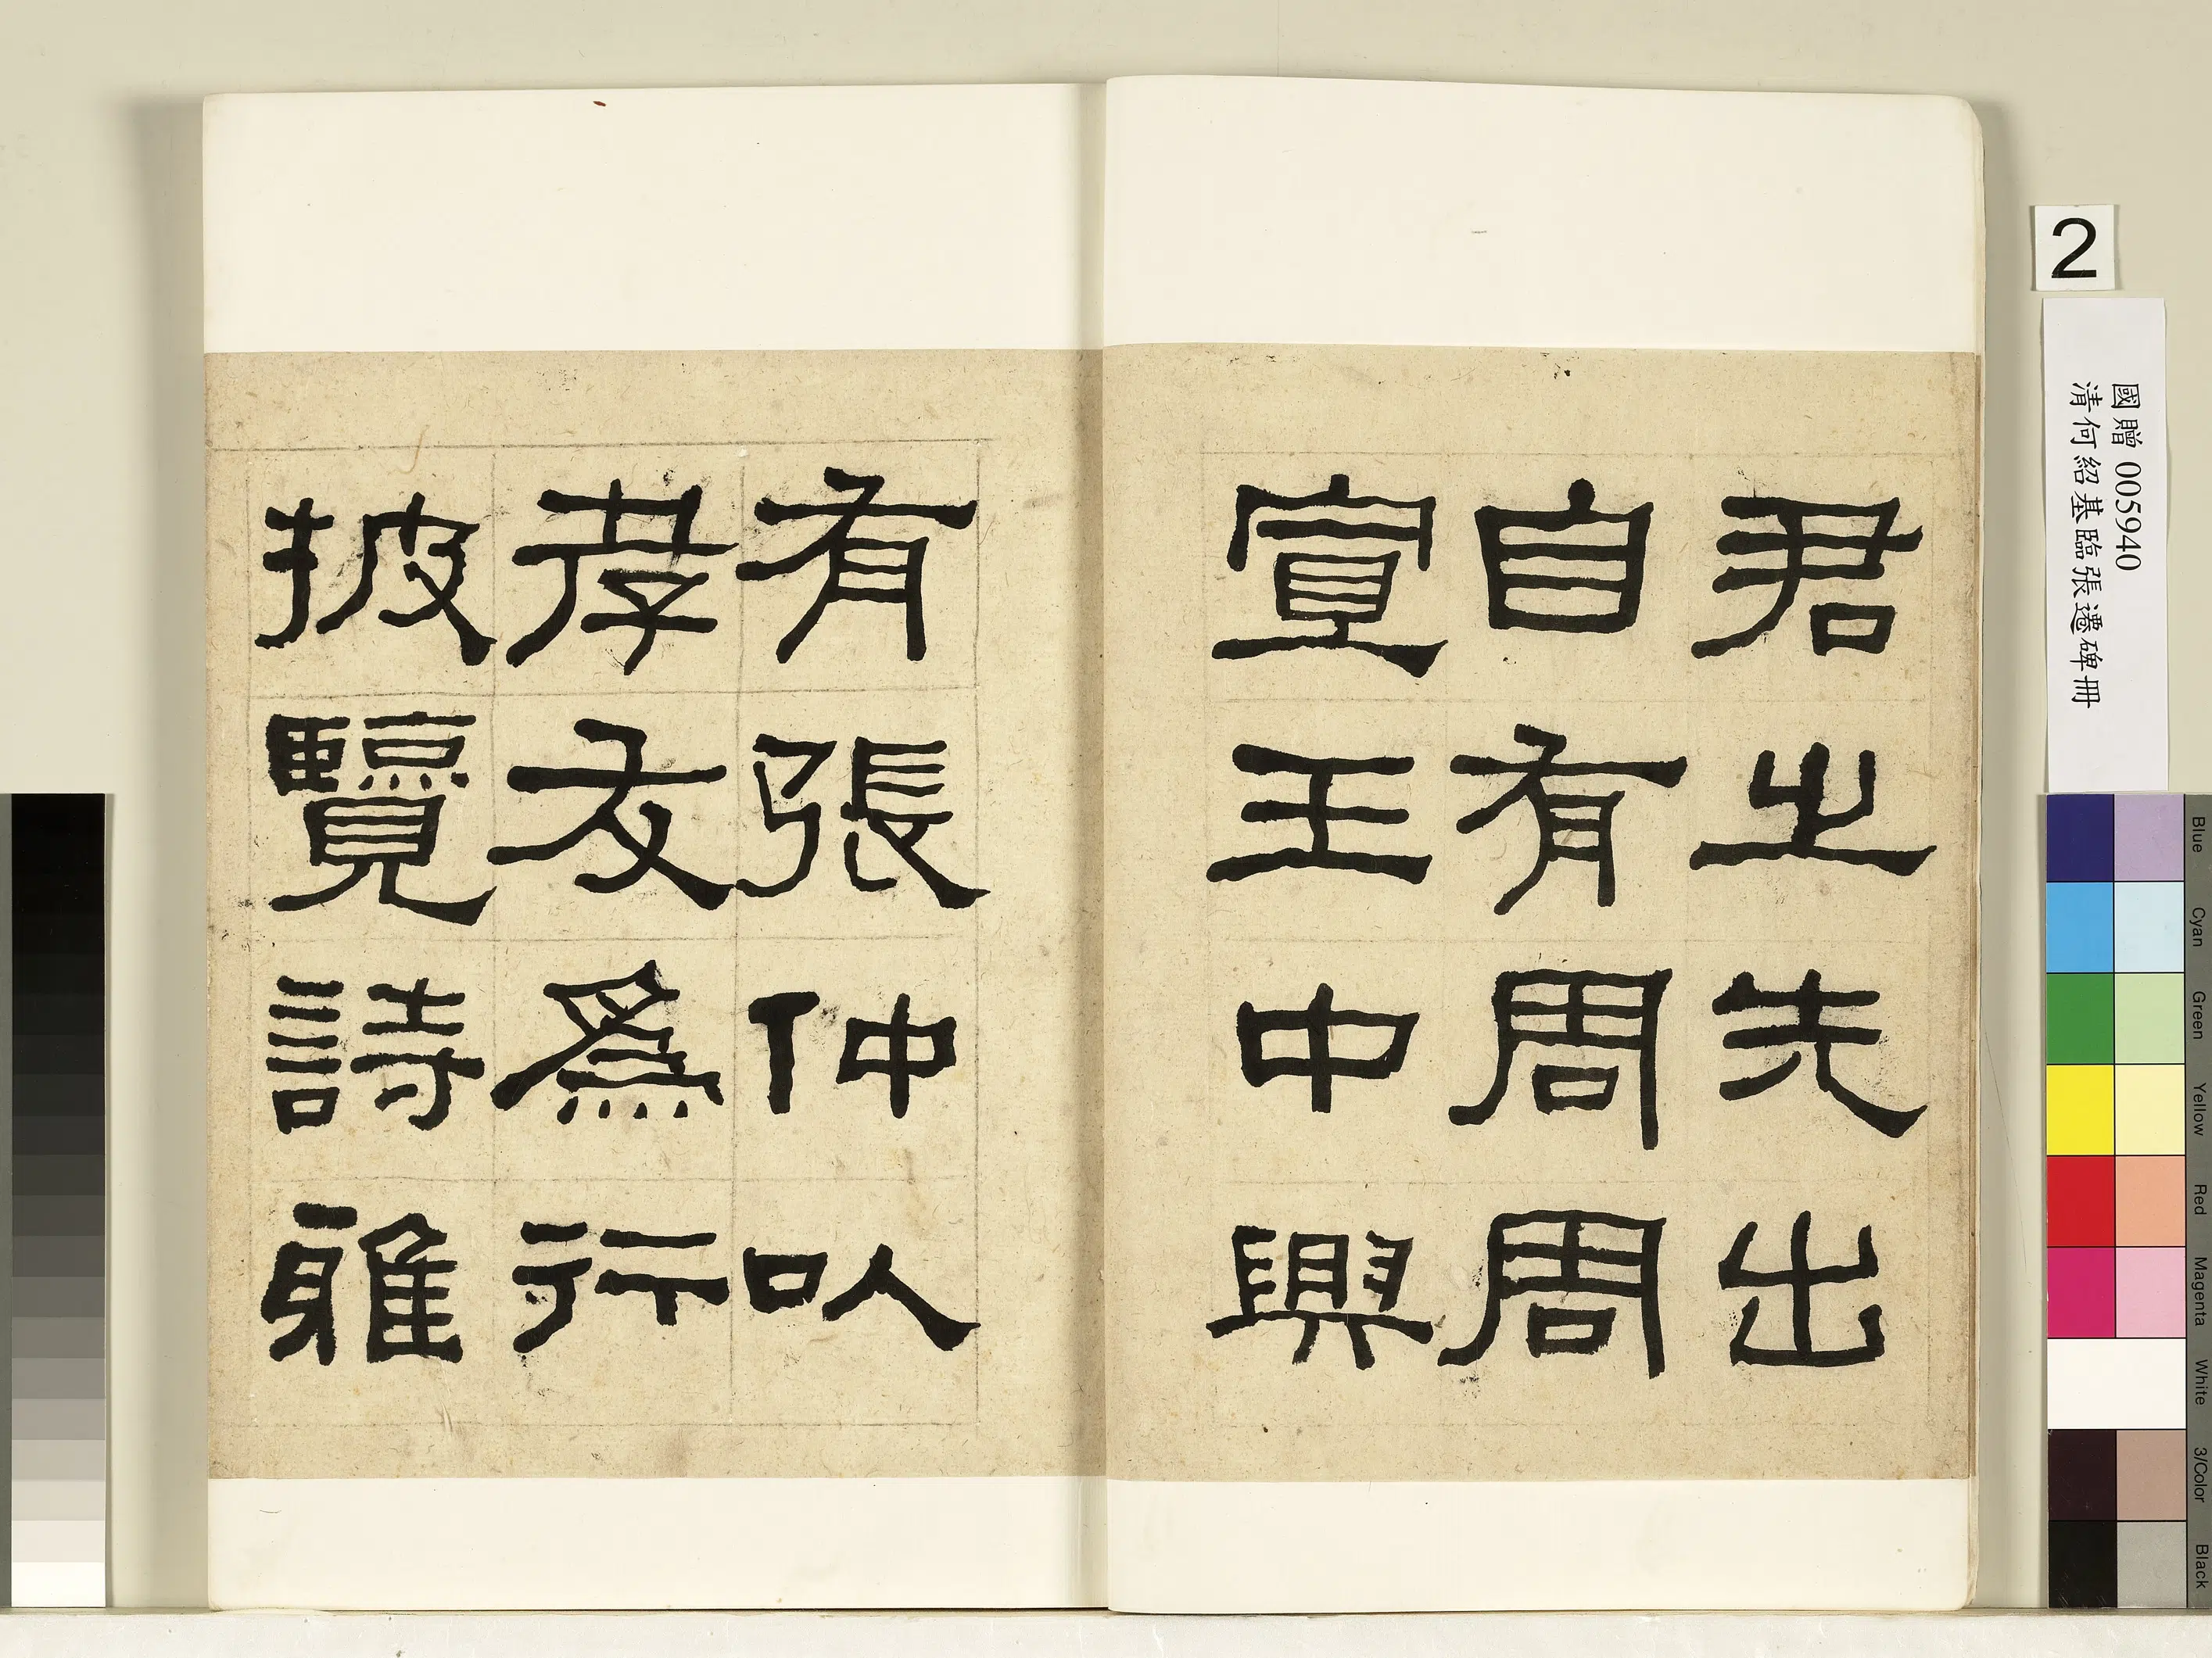 君之先出
自有周周
宣王中興
有張仲以
孝友為行
披覽詩雅
2
國贈 005940
清何紹基臨張遷碑冊
Blue
Cyan
Green
Yellow
Red
Magenta
White
3/Color
Black